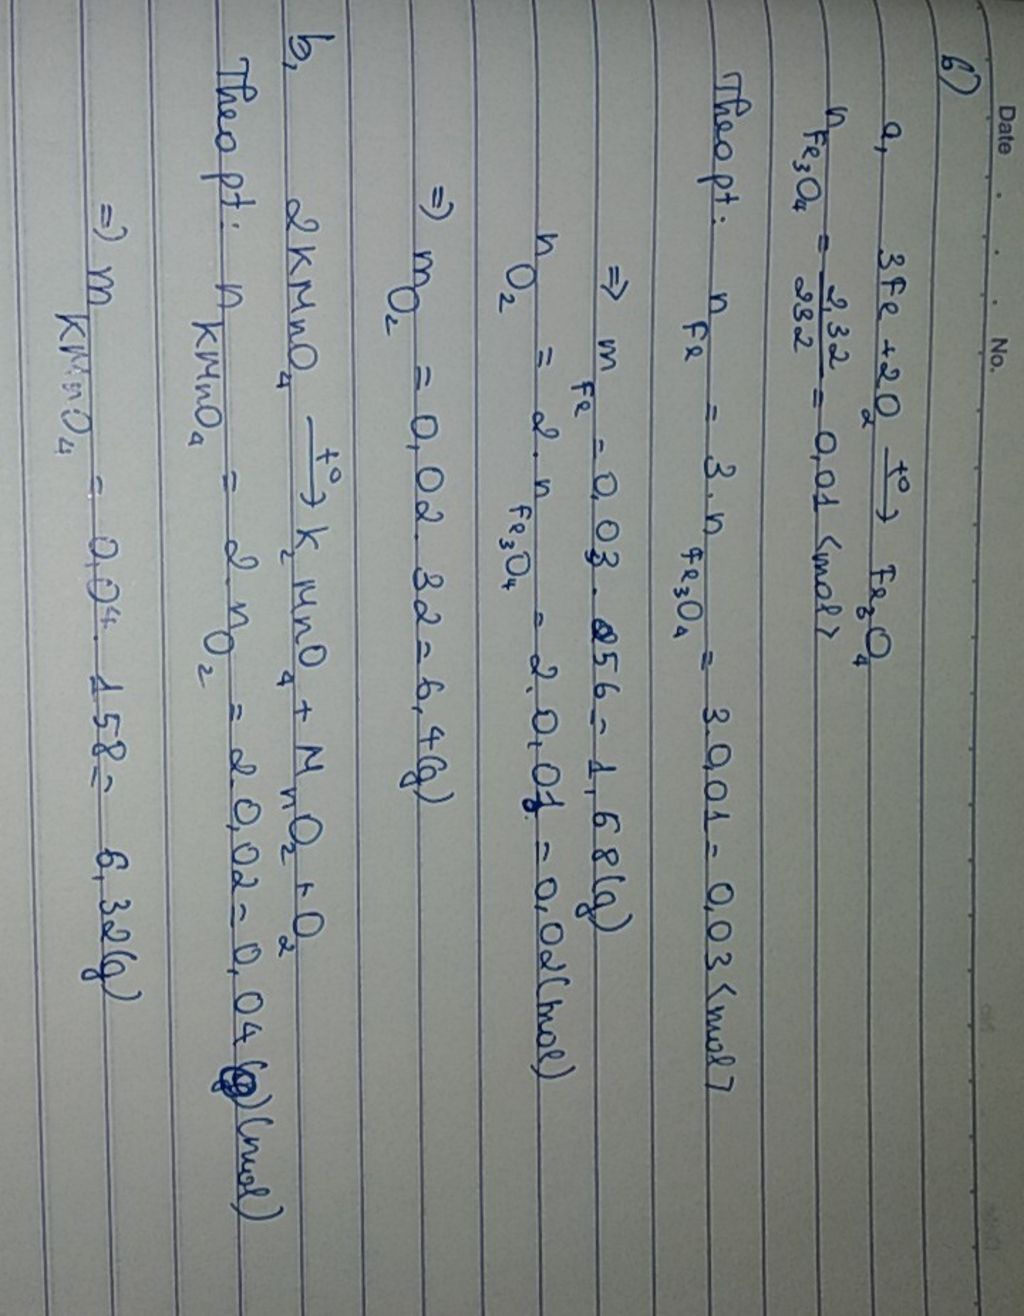 Date . . . No.
6)
a, 3Fe + 2O₂ —t°→ Fe₃O₄
n Fe₃O₄ = 2,32/232 = 0,01 <mol>
Theo pt: n Fe = 3.n Fe₃O₄ = 3.0,01 = 0,03 <mol>
=> m Fe = 0,03. 56 = 1,68(g)
n O₂ = 2.n Fe₃O₄ = 2.0,01 = 0,02(mol)
=> m O₂ = 0,02. 32 = 6,4(g)
b, 2KMnO₄ —t°→ K₂MnO₄ + MnO₂ + O₂
Theo pt: n KMnO₄ = 2.n O₂ = 2.0,02 = 0,04 (mol)
=> m KMnO₄ = 0,04. 158 = 6,32(g)